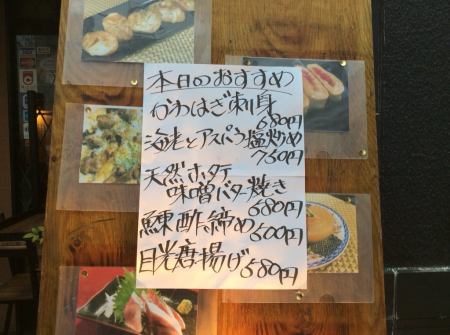 本日のおすすめ
かわはぎ刺身
680円
海老とアスパラ塩炒め
750円
天然ホタテ
味噌バター焼き
680円
鰊酢〆締め500円
目光唐揚げ580円